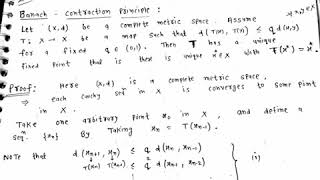 Banach - contraction principle :
∀ x,y ∈ X
Let (X,d) be a complete metric space. Assume
T: X → X be a map such that d(T(x), T(y)) ≤ q d(x,y)
for a fixed q ∈ (0,1). Then T has a unique
fixed point that is there is unique x* ∈ X with T(x*) = x*.
Proof: Here (X,d) is a complete metric space,
⇒ each cauchy seqⁿ in X is converges to some point
in X.
Take one arbitrary point x₀ in X, and define a
seqⁿ {xₙ} By taking xₙ = T(xₙ₋₁)
Note that d(xₙ₊₁, xₙ) ≤ q d(xₙ, xₙ₋₁)
T(xₙ) T(xₙ₋₁) ≤ q d(xₙ₋₁, xₙ₋₂)